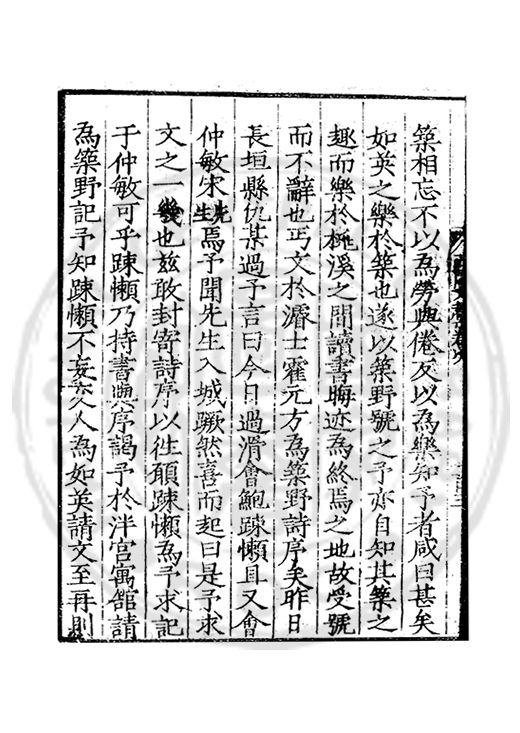 築相忘不以為勞與倦反以為樂知予者咸曰甚矣
如英之樂於築也遂以築野號之予亦自知其築之
趣而樂於梅溪之間讀書晦迹為終焉之地故受號
而不辭也丐文於濬士霍元方為築野詩序矣昨日
長垣縣仇某過予言曰今日過滑會鮑踈懶且又會
仲敏宋先生焉予聞先生入城蹶然喜而起曰是予求
文之一幾也茲敢封寄詩序以徃願踈懶為予求記
于仲敏可乎踈懶乃持書與序謁予於泮宫寓舘請
為築野記予知踈懶不妄交人為如英請文至再則